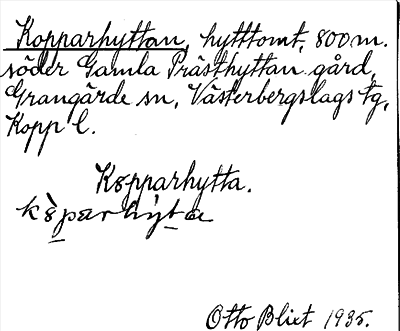 Kopparhyttan, hytttomt, 800 m.
söder Gamla Prästhyttan gård,
Grangärde sn, Västerbergslags tg,
Kopp l.
Kopparhytta.
Otto Blixt 1935.